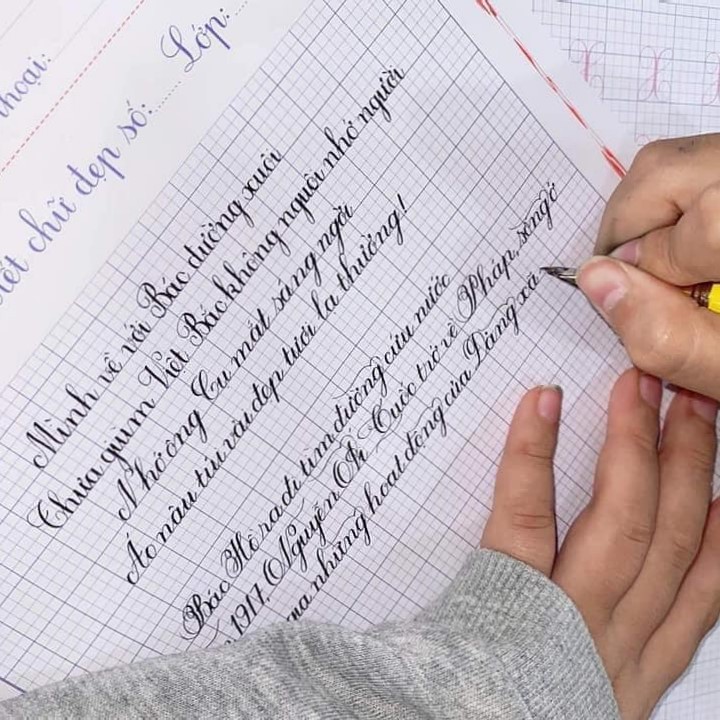 thoại:
viết chữ đẹp số: Lớp:
Mình về với Bác đường xuôi
Thưa giùm Việt Bắc không nguôi nhớ người
Nhớ ông Cụ mắt sáng ngời
Áo nâu túi vải đẹp tươi lạ thường!
Bác Hồ ra đi tìm đường cứu nước
1917, Nguyễn Ái Quốc trở về Pháp, sống ở
những hoạt động của Đảng xã
X X